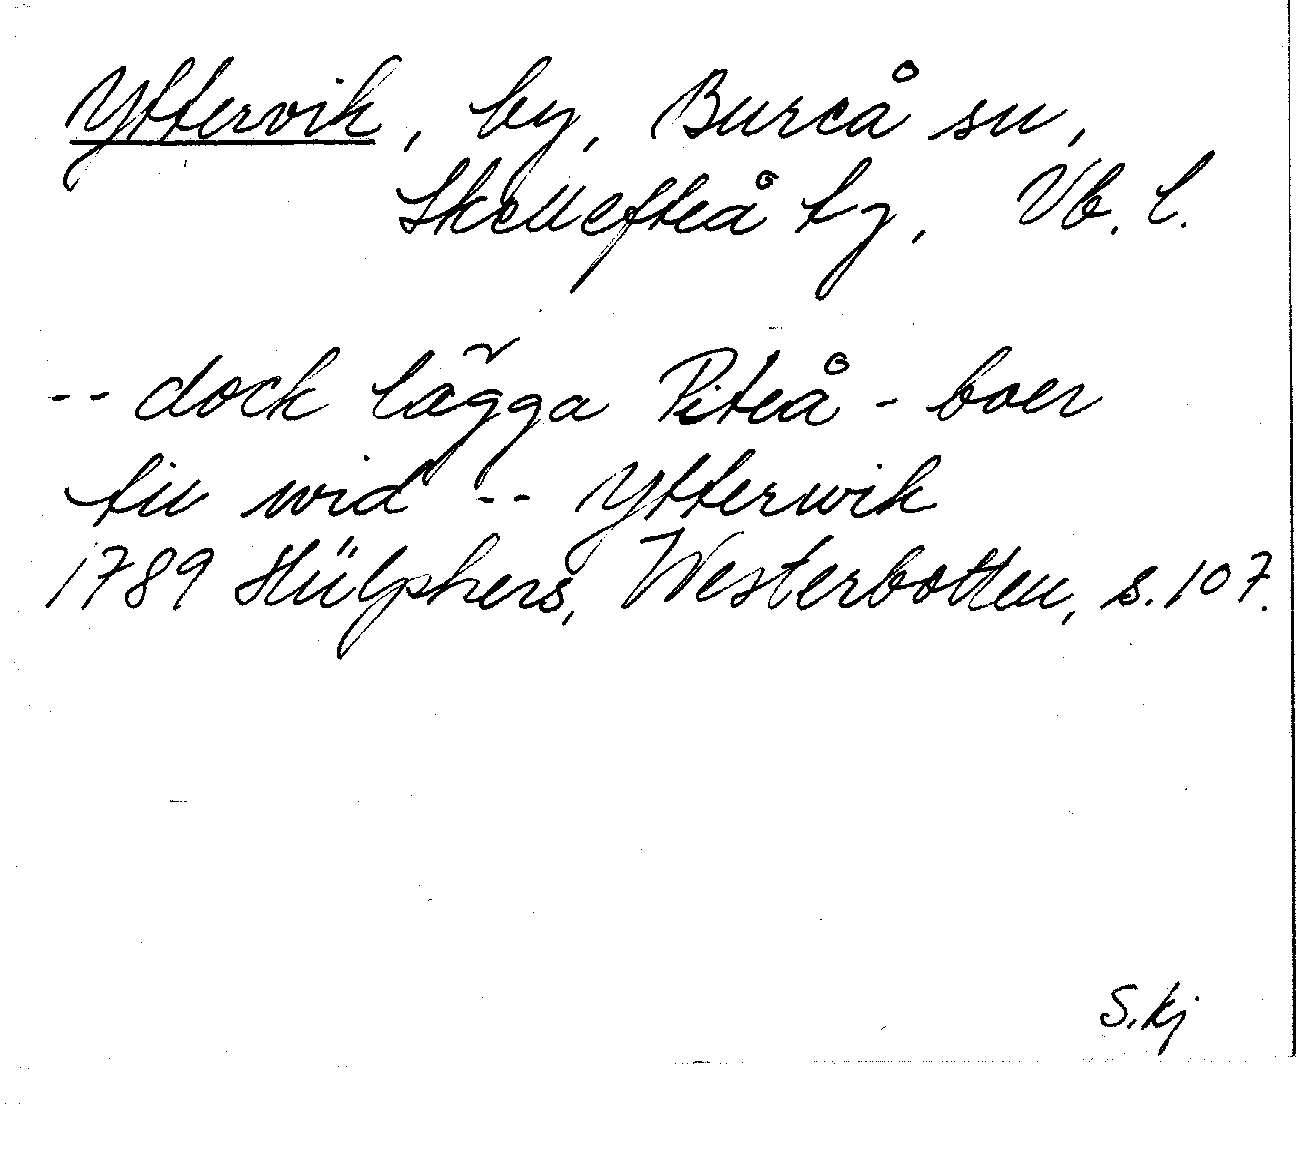 Yttervik, by, Bureå sn,
Skellefteå tg, Vb. l.
-- dock lägga Piteå-boer
till wid -- Ytterwik
1789 Hülphers, Westerbotten, s. 107.
S. kj